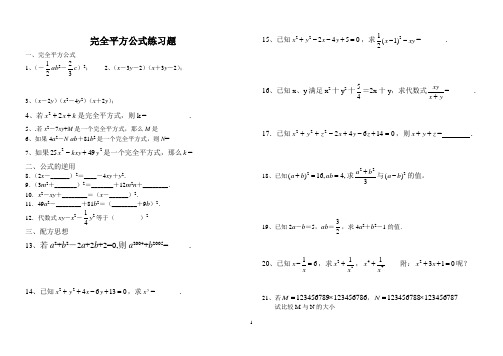 完全平方公式练习题
一、完全平方公式
1、(－1/2ab²－2/3c)²； 2、(x－3y－2)(x＋3y－2)；
3、(x－2y)(x²－4y²)(x＋2y)；
4、若 x²＋2x＋k 是完全平方式，则 k＝________.
5、.若 x²－7xy+M 是一个完全平方式，那么 M 是
6、如果 4a²－N·ab＋81b² 是一个完全平方式，则 N=
7、如果 25x²－kxy＋49y² 是一个完全平方式，那么 k＝
二、公式的逆用
8．(2x－______)²＝____－4xy＋y²．
9．(3m²+_______)²=_______+12m²n+________．
10．x²－xy＋________＝(x－______)²．
11．49a²－________＋81b²＝(________＋9b)²．
12．代数式 xy－x²－1/4y² 等于（ ）²
三、配方思想
13、若 a²+b²－2a+2b+2=0,则 a²⁰⁰⁴+b²⁰⁰⁵=_____.
14、已知 x²+y²+4x－6y+13=0，求 xʸ=_______.
15、已知 x²+y²－2x－4y+5=0，求 1/2(x－1)²－xy=_______.
16、已知 x、y 满足 x²十 y²十 5/4＝2x 十 y，求代数式 xy/(x+y)=_______.
17．已知 x²+y²+z²－2x+4y－6z+14=0，则 x+y+z=________.
18、已知 (a+b)²=16,ab=4, 求 (a²+b²)/3 与 (a－b)² 的值。
19、已知 2a－b＝5，ab＝3/2，求 4a²＋b²－1 的值．
20、已知 x－1/x=6，求 x²+1/x²，x⁴+1/x⁴ 附：x²+3x+1=0 呢?
21、若 M=123456789×123456786，N=123456788×123456787
试比较 M 与 N 的大小
1